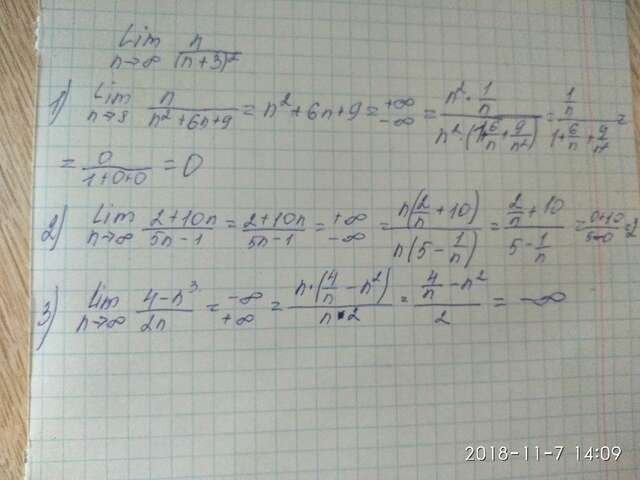 lim n→∞ n/(n+3)²
1) lim n→3 n/(n²+6n+9) = n²+6n+9 = +∞/-∞ = (n²·1/n)/(n²·(1+6/n+9/n²)) = (1/n)/(1+6/n+9/n²) =
= 0/(1+0+0) = 0
2) lim n→∞ (2+10n)/(5n-1) = (2+10n)/(5n-1) = +∞/-∞ = n(2/n+10)/n(5-1/n) = (2/n+10)/(5-1/n) = (0+10)/(5-0) = 2
3) lim n→∞ (4-n³)/2n = -∞/+∞ = n·(4/n-n²)/n·2 = (4/n-n²)/2 = -∞
2018-11-7 14:09